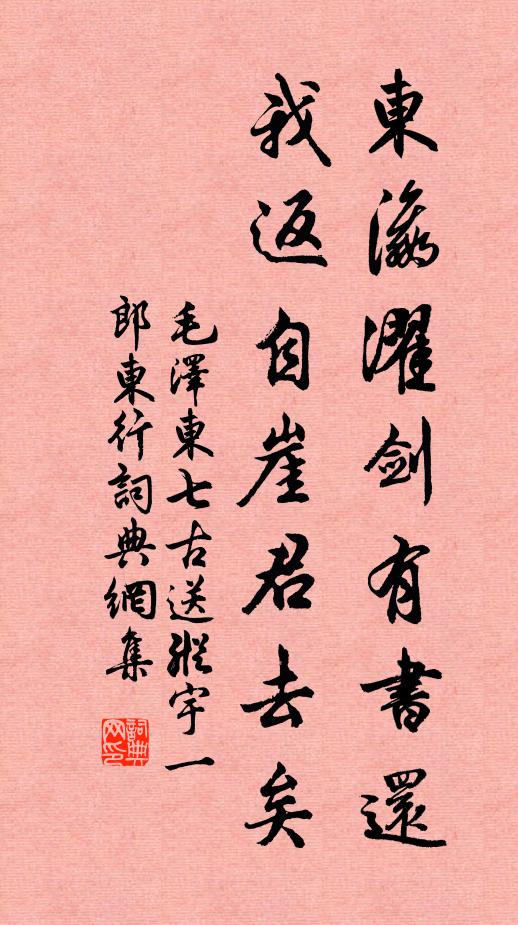 東瀛濯劍有書還
我返自崖君去矣
毛澤東七古送縱宇一
郎東行詞典網集
詞典網印